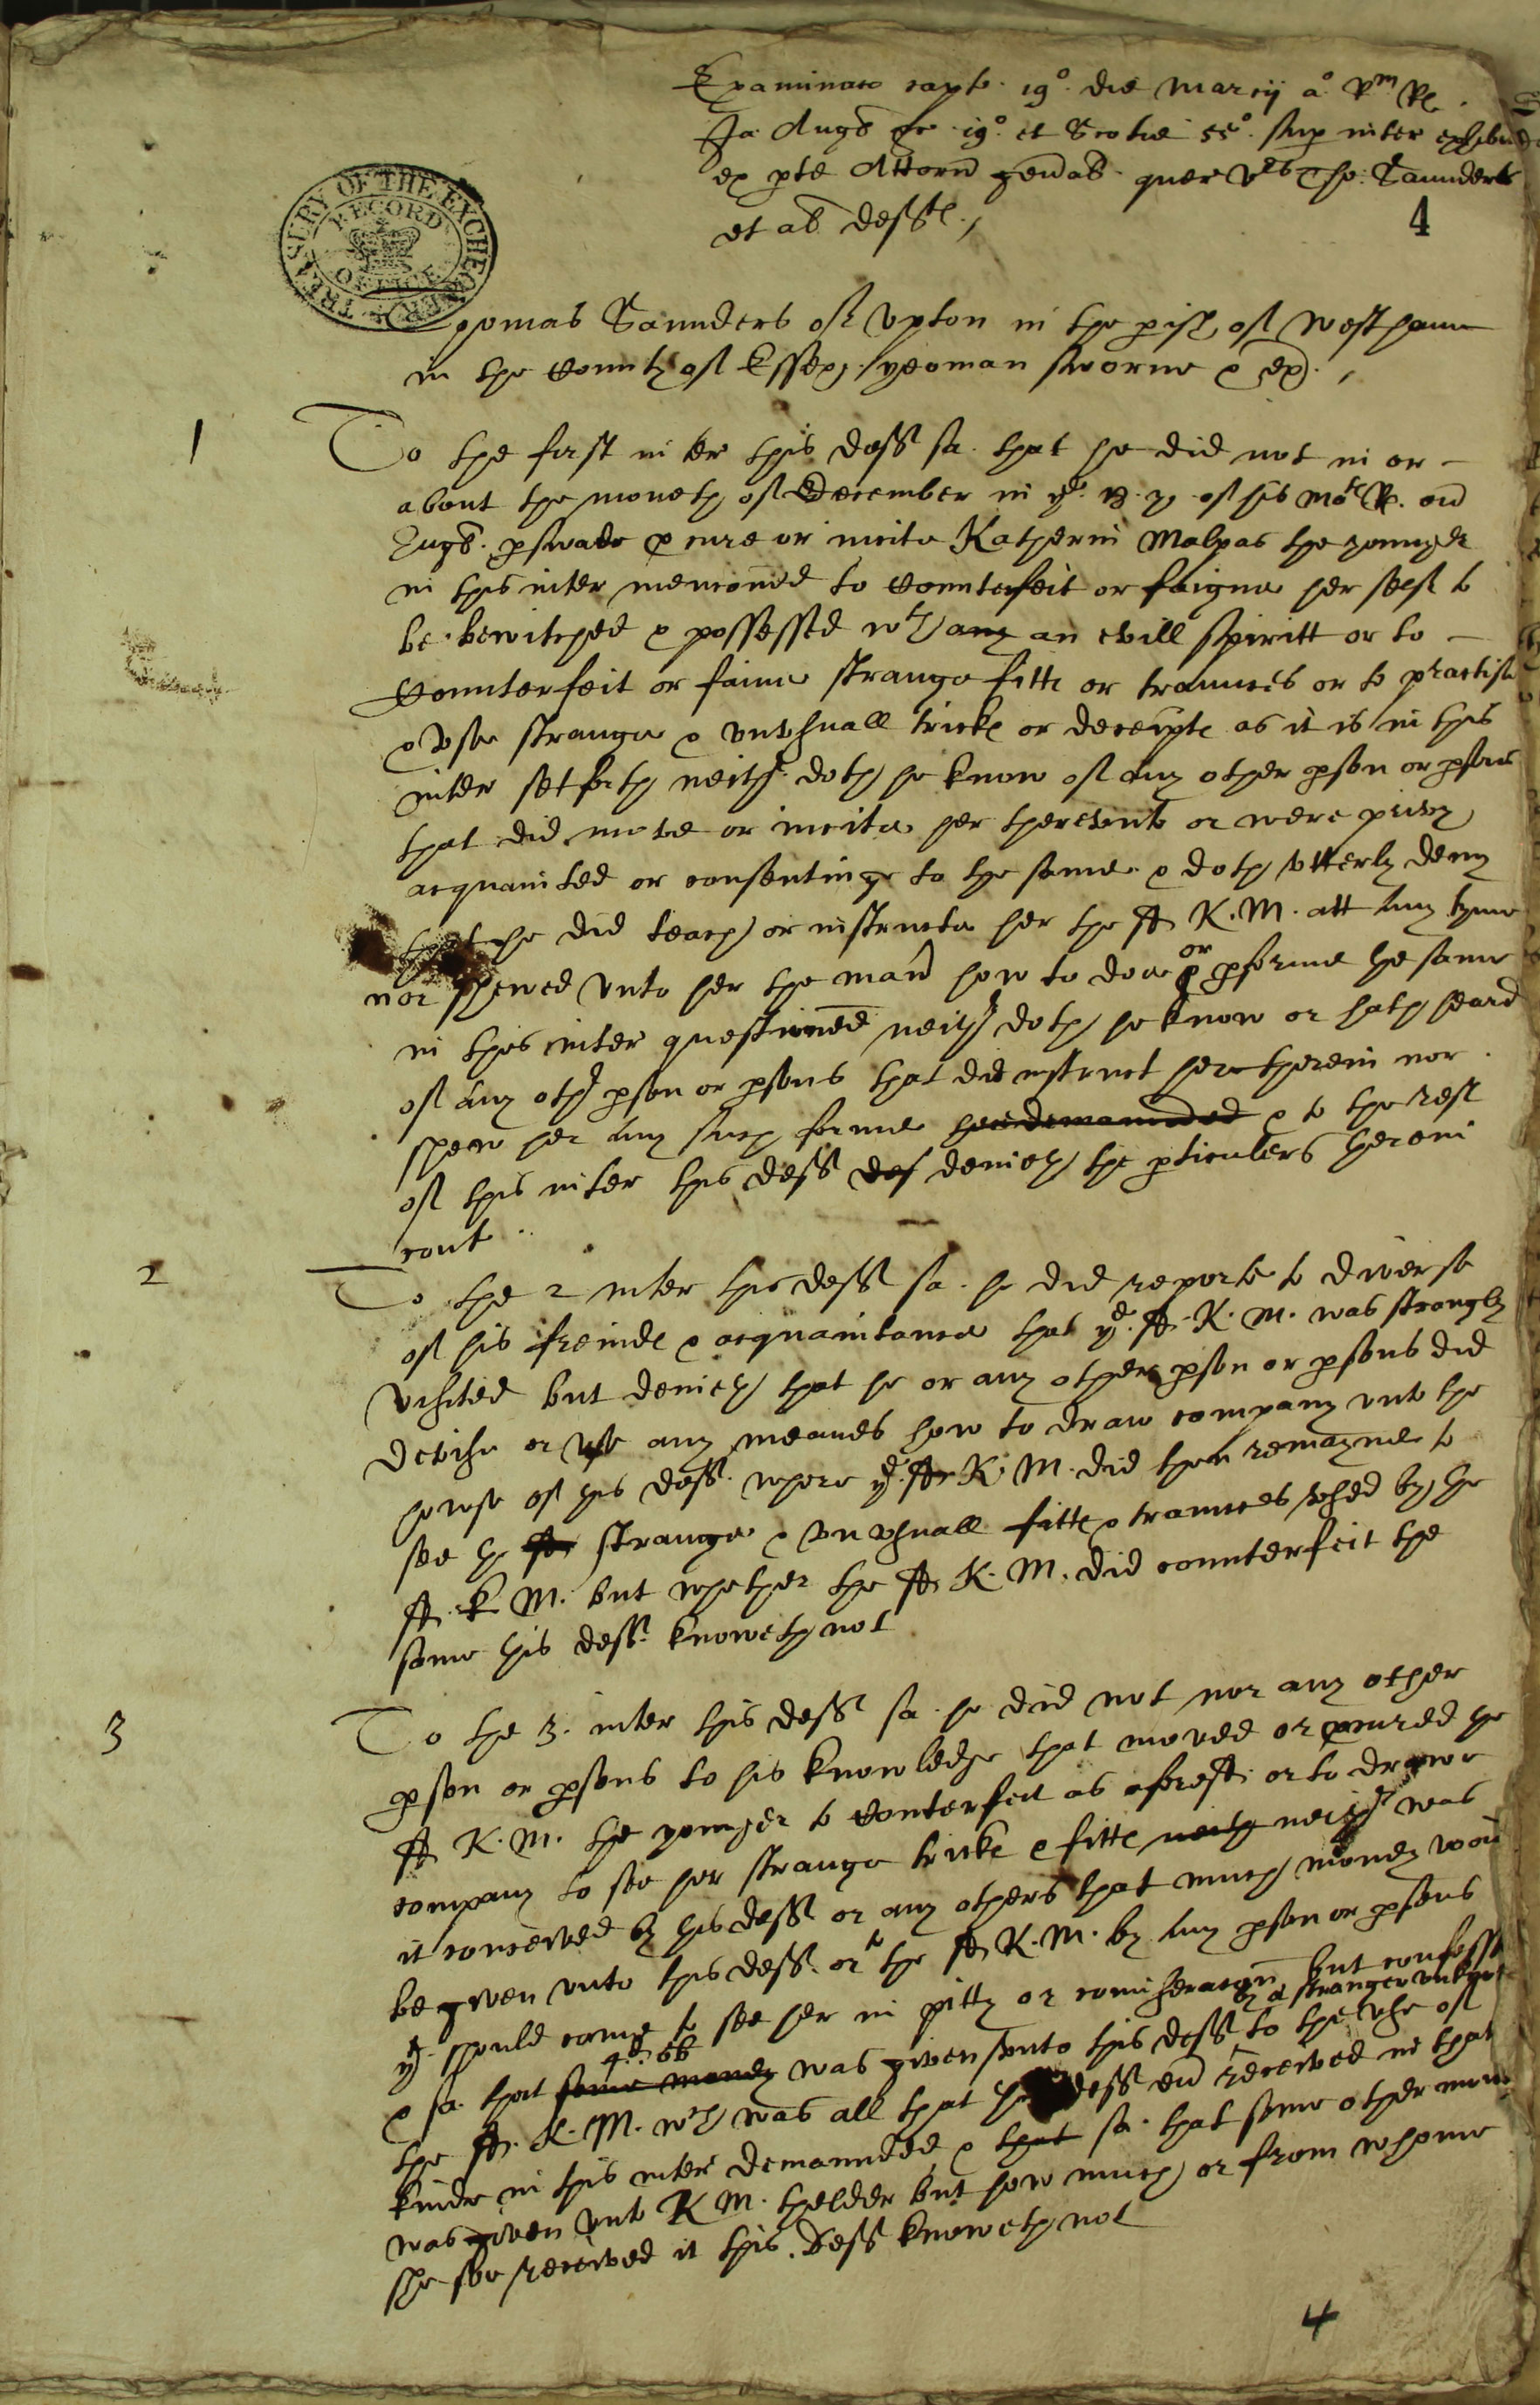 Examinaco capt. 19º. die Marcij aº. Rm Re.
Ja: Angl &c 19º. et Scotie 55º. sup inter exhibit
ex pte Attorn genāl quer vrs Tho: Saunders
et al defte /
4
TREASURY OF THE EXCHEQUER
RECORD OFFICE
Thomas Saunders of Vpton in the pish of Westhame
in the County of Essex yeoman sworne & ex. /
1
To the first inter this deft sa. that he did not in or
about the moneth of December in ye. 18. y. of his Mats R. ou
Engl. pswade pcure or incite Katherin Malpas the younger
in this inter mencōned to Counterfeit or faigne her self to
be bewitched & possessed wth any an evill spiritt or to
Counterfeit or faine strange fitts or traunces or to practise
& vse strange & vnvsuall tricks or deceipts as it is in this
inter setforth neithr. doth he know of any other pson or psons
that did move or incite her therevnto or were privy
acquainted or consentinge to the same & doth vtterly deny
that he did teach or instructe her the sd K. M. att any tyme
nor shewed vnto her the mañ how to doe & or pforme the same
in this inter questioned neithr doth he know or hath heard
of any othr pson or psons that did instruct her therein nor
shew her any such forme her demaunded & to the rest
of this inter this deft def denieth the pticulers herein
cont
2
To the 2 inter this deft sa. he did reporte to diverse
of his freinds & acquaintance that ye. sd. K. M. was strangly
visited but denieth that he or any other pson or psons did
devise or vse any meanes how to draw company vnto the
howse of this deft. where ye. sd K. M. did then remayne to
see ye sd strange & vnvsuall fitts & traunces vsed by the
sd. K. M. but whether the sd K. M. did counterfeit the
same this deft. knoweth not
3
To the 3. inter this deft sa. he did not nor any other
pson or psons to his knowledge that moved or pcured the
sd K. M. the younger to Conterfeit as aforesd. or to drawe
company to see her strange tricks & fitts neith neithr was
it conceived by this deft or any others that much money wou
be given vnto this deft. or to the sd K. M. by any pson or psons
yt. should come to see her in pitty or comiseracon but confesse
& sa. that some money 4d. ob was given vnto this deft by a stranger vnknow to the vse of
the sd. K. M. wch was all that this deft ou received in that
kinde in this inter demaunded & that sa. that some other mon
was given vnto K M. thelder but how much or from whome
she soe received it this. Deft knoweth not
4